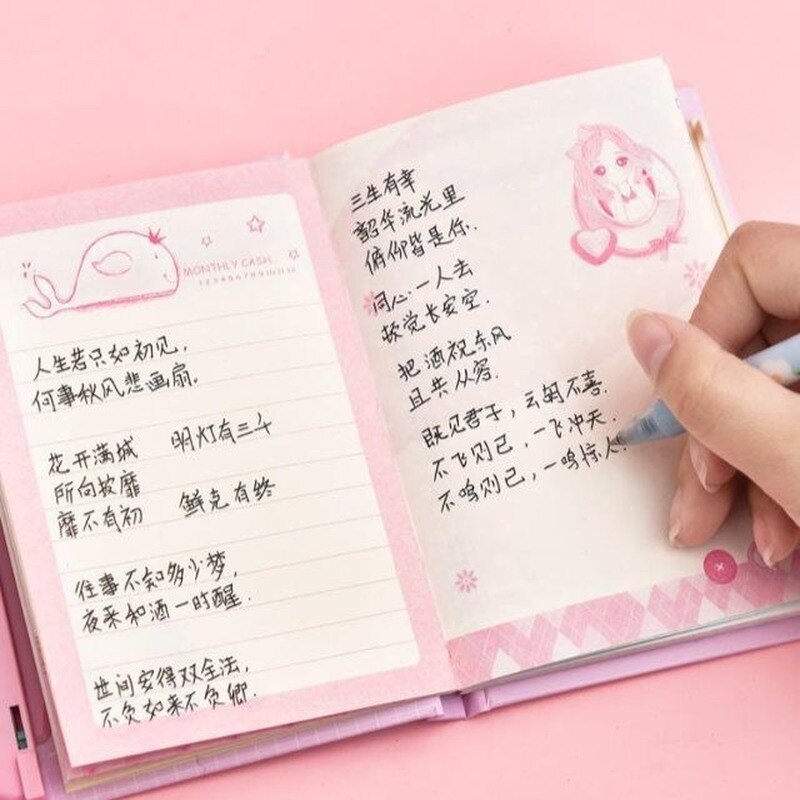 MONTHLY CASH
1 2 3 4 5 6 7 8 9 10 11 12
人生若只如初见,
何事秋风悲画扇.
花开满城 明灯有三千
所向披靡
靡不有初 鲜克有终
往事不知多少梦,
夜来和酒一时醒.
世间安得双全法,
不负如来不负卿.
三生有幸
韶华流光里
俯仰皆是你.
同心一人去
顿觉长安空.
把酒祝东风
且共从容.
既见君子,云胡不喜.
不飞则已,一飞冲天.
不鸣则已,一鸣惊人.